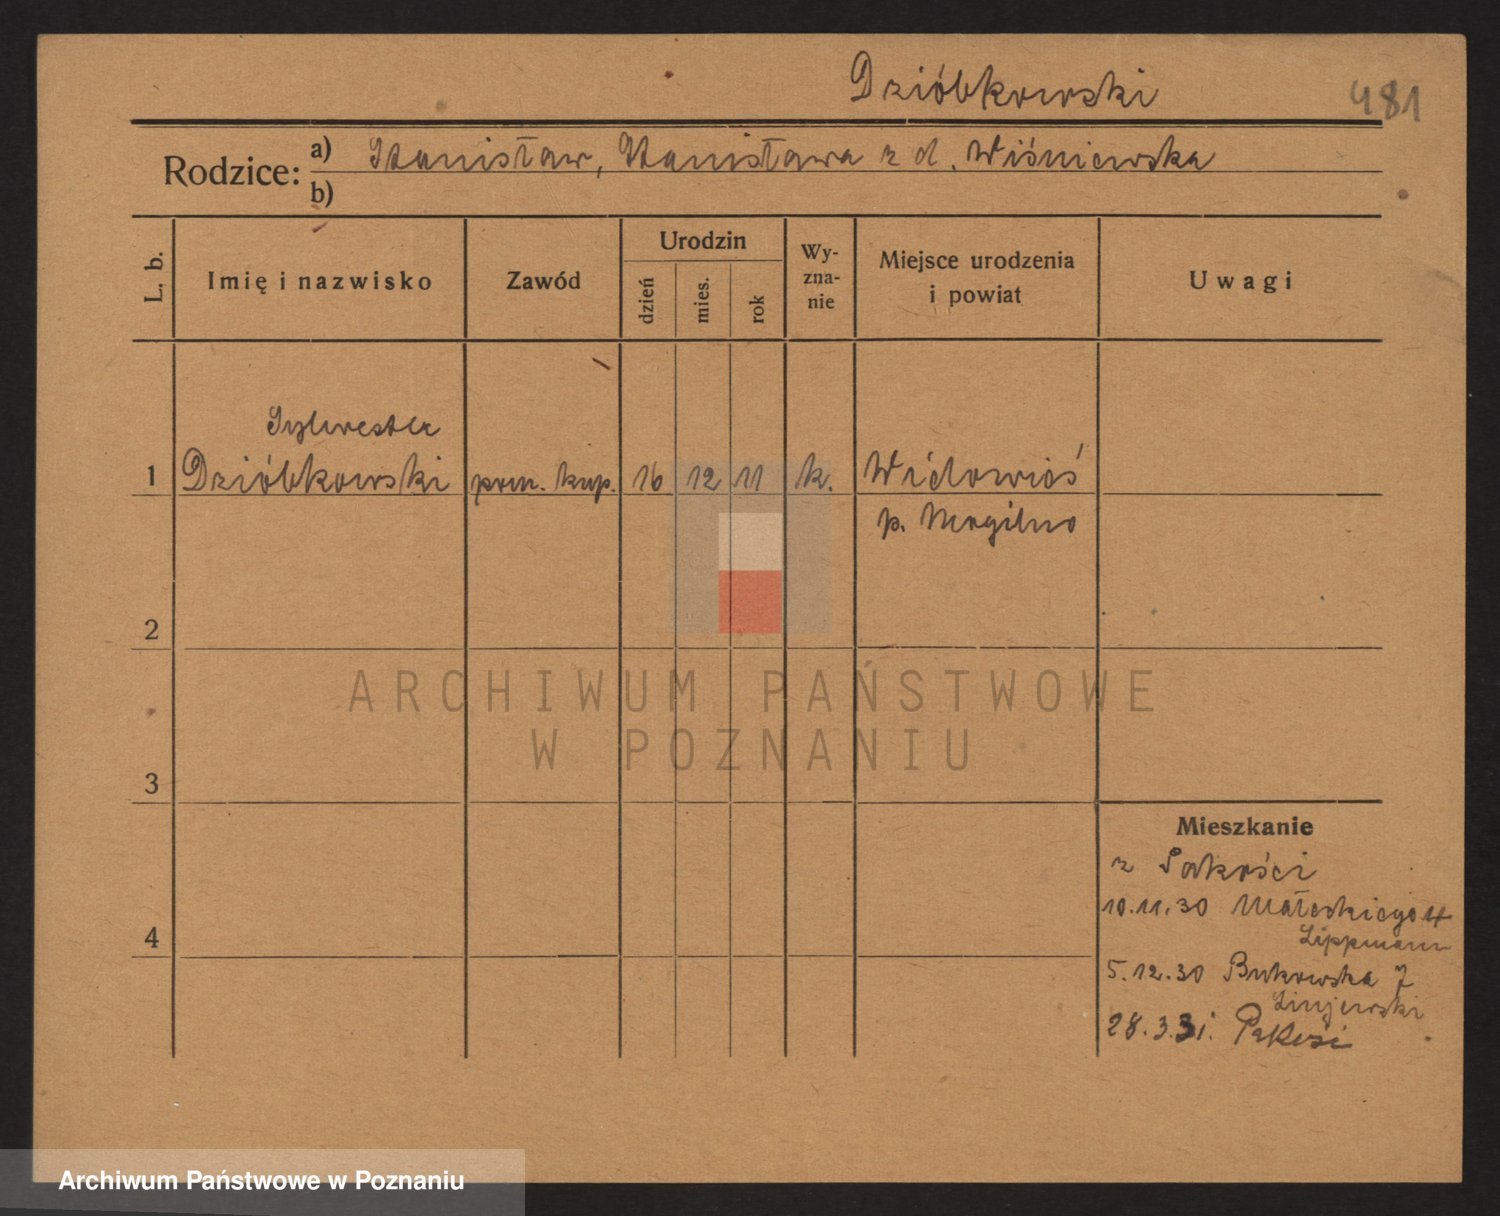 Dzióbkowski
481
Rodzice: a) Stanisław, Stanisława z d. Wiśniewska
b)
L. b.
Imię i nazwisko
Zawód
Urodzin
dzień
mies.
rok
Wy-
zna-
nie
Miejsce urodzenia
i powiat
Uwagi
Sylwester
1 Dzióbkowski pom. kup. 16 12 11 k.
p. Mogilno
2
ARCHIWUM PAŃSTWOWE
W POZNANIU
3
Mieszkanie
z Pakości
10.11.30 Małeckiego
4
Lippmann
5.12.30 Bukowska 7
28.3.31. Pakość
Archiwum Państwowe w Poznaniu